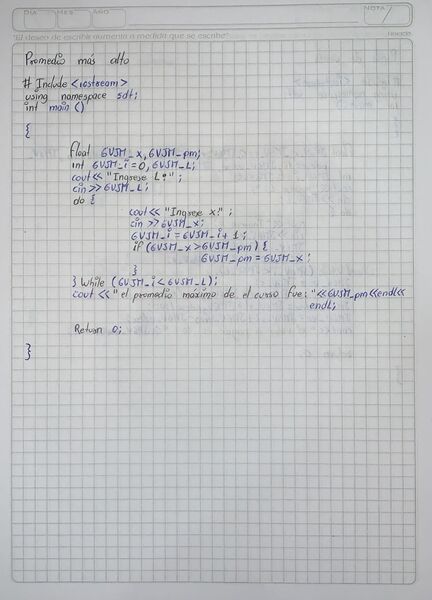 DÍA
MES
AÑO
NOTA
"El deseo de escribir aumenta a medida que se escribe"
Promedio más alto
# Include <iostream>
using namespace sdt;
int main ()
{
float GVJM_x, GVJM_pm;
int GVJM_i = 0, GVJM_L;
cout << "Ingrese L:" ;
cin >> GVJM_L;
do {
cout << "Ingrese x:" ;
cin >> GVJM_x;
GVJM_i = GVJM_i + 1;
if (GVJM_x > GVJM_pm) {
GVJM_pm = GVJM_x ;
}
} While (GVJM_i < GVJM_L);
cout << "el promedio máximo de el curso fue: " << GVJM_pm << endl <<
endl;
Return 0;
}